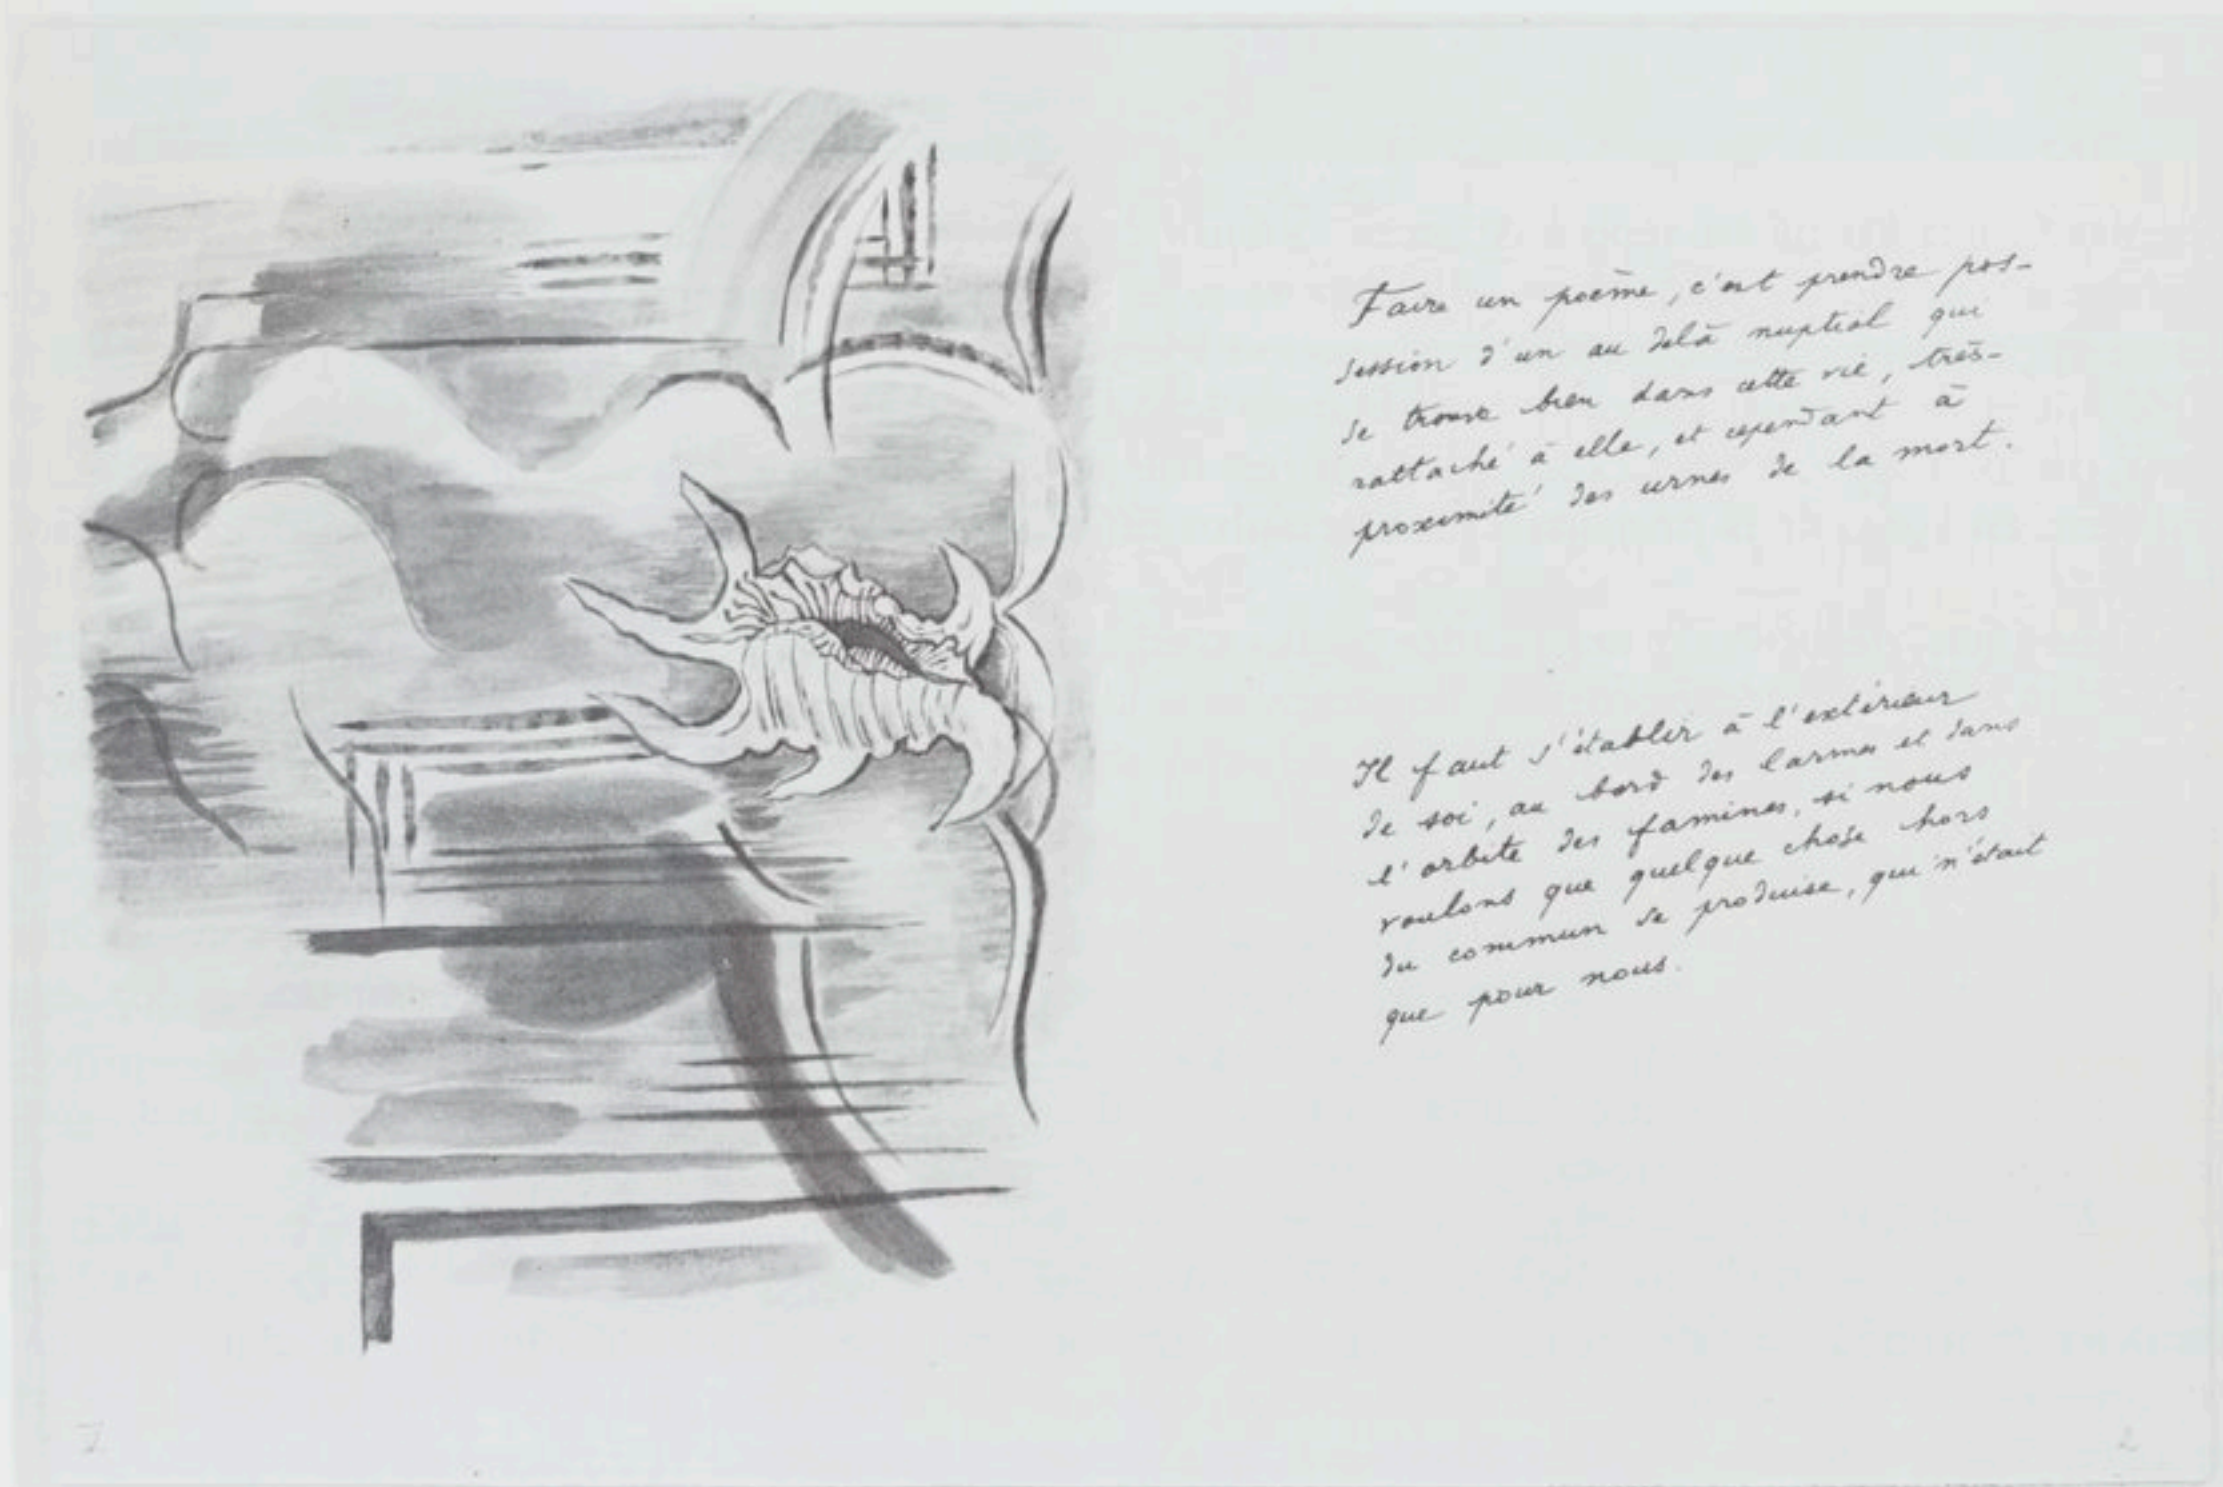 Faire un poème, c'est prendre pos-
session d'un au delà nuptial qui
se trouve bien dans cette vie, très-
rattaché à elle, et cependant à
proximité des urnes de la mort.
Il faut s'établir à l'extérieur
de soi, au bord des larmes et dans
l'orbite des famines, si nous
voulons que quelque chose hors
du commun se produise, qui n'était
que pour nous.
2